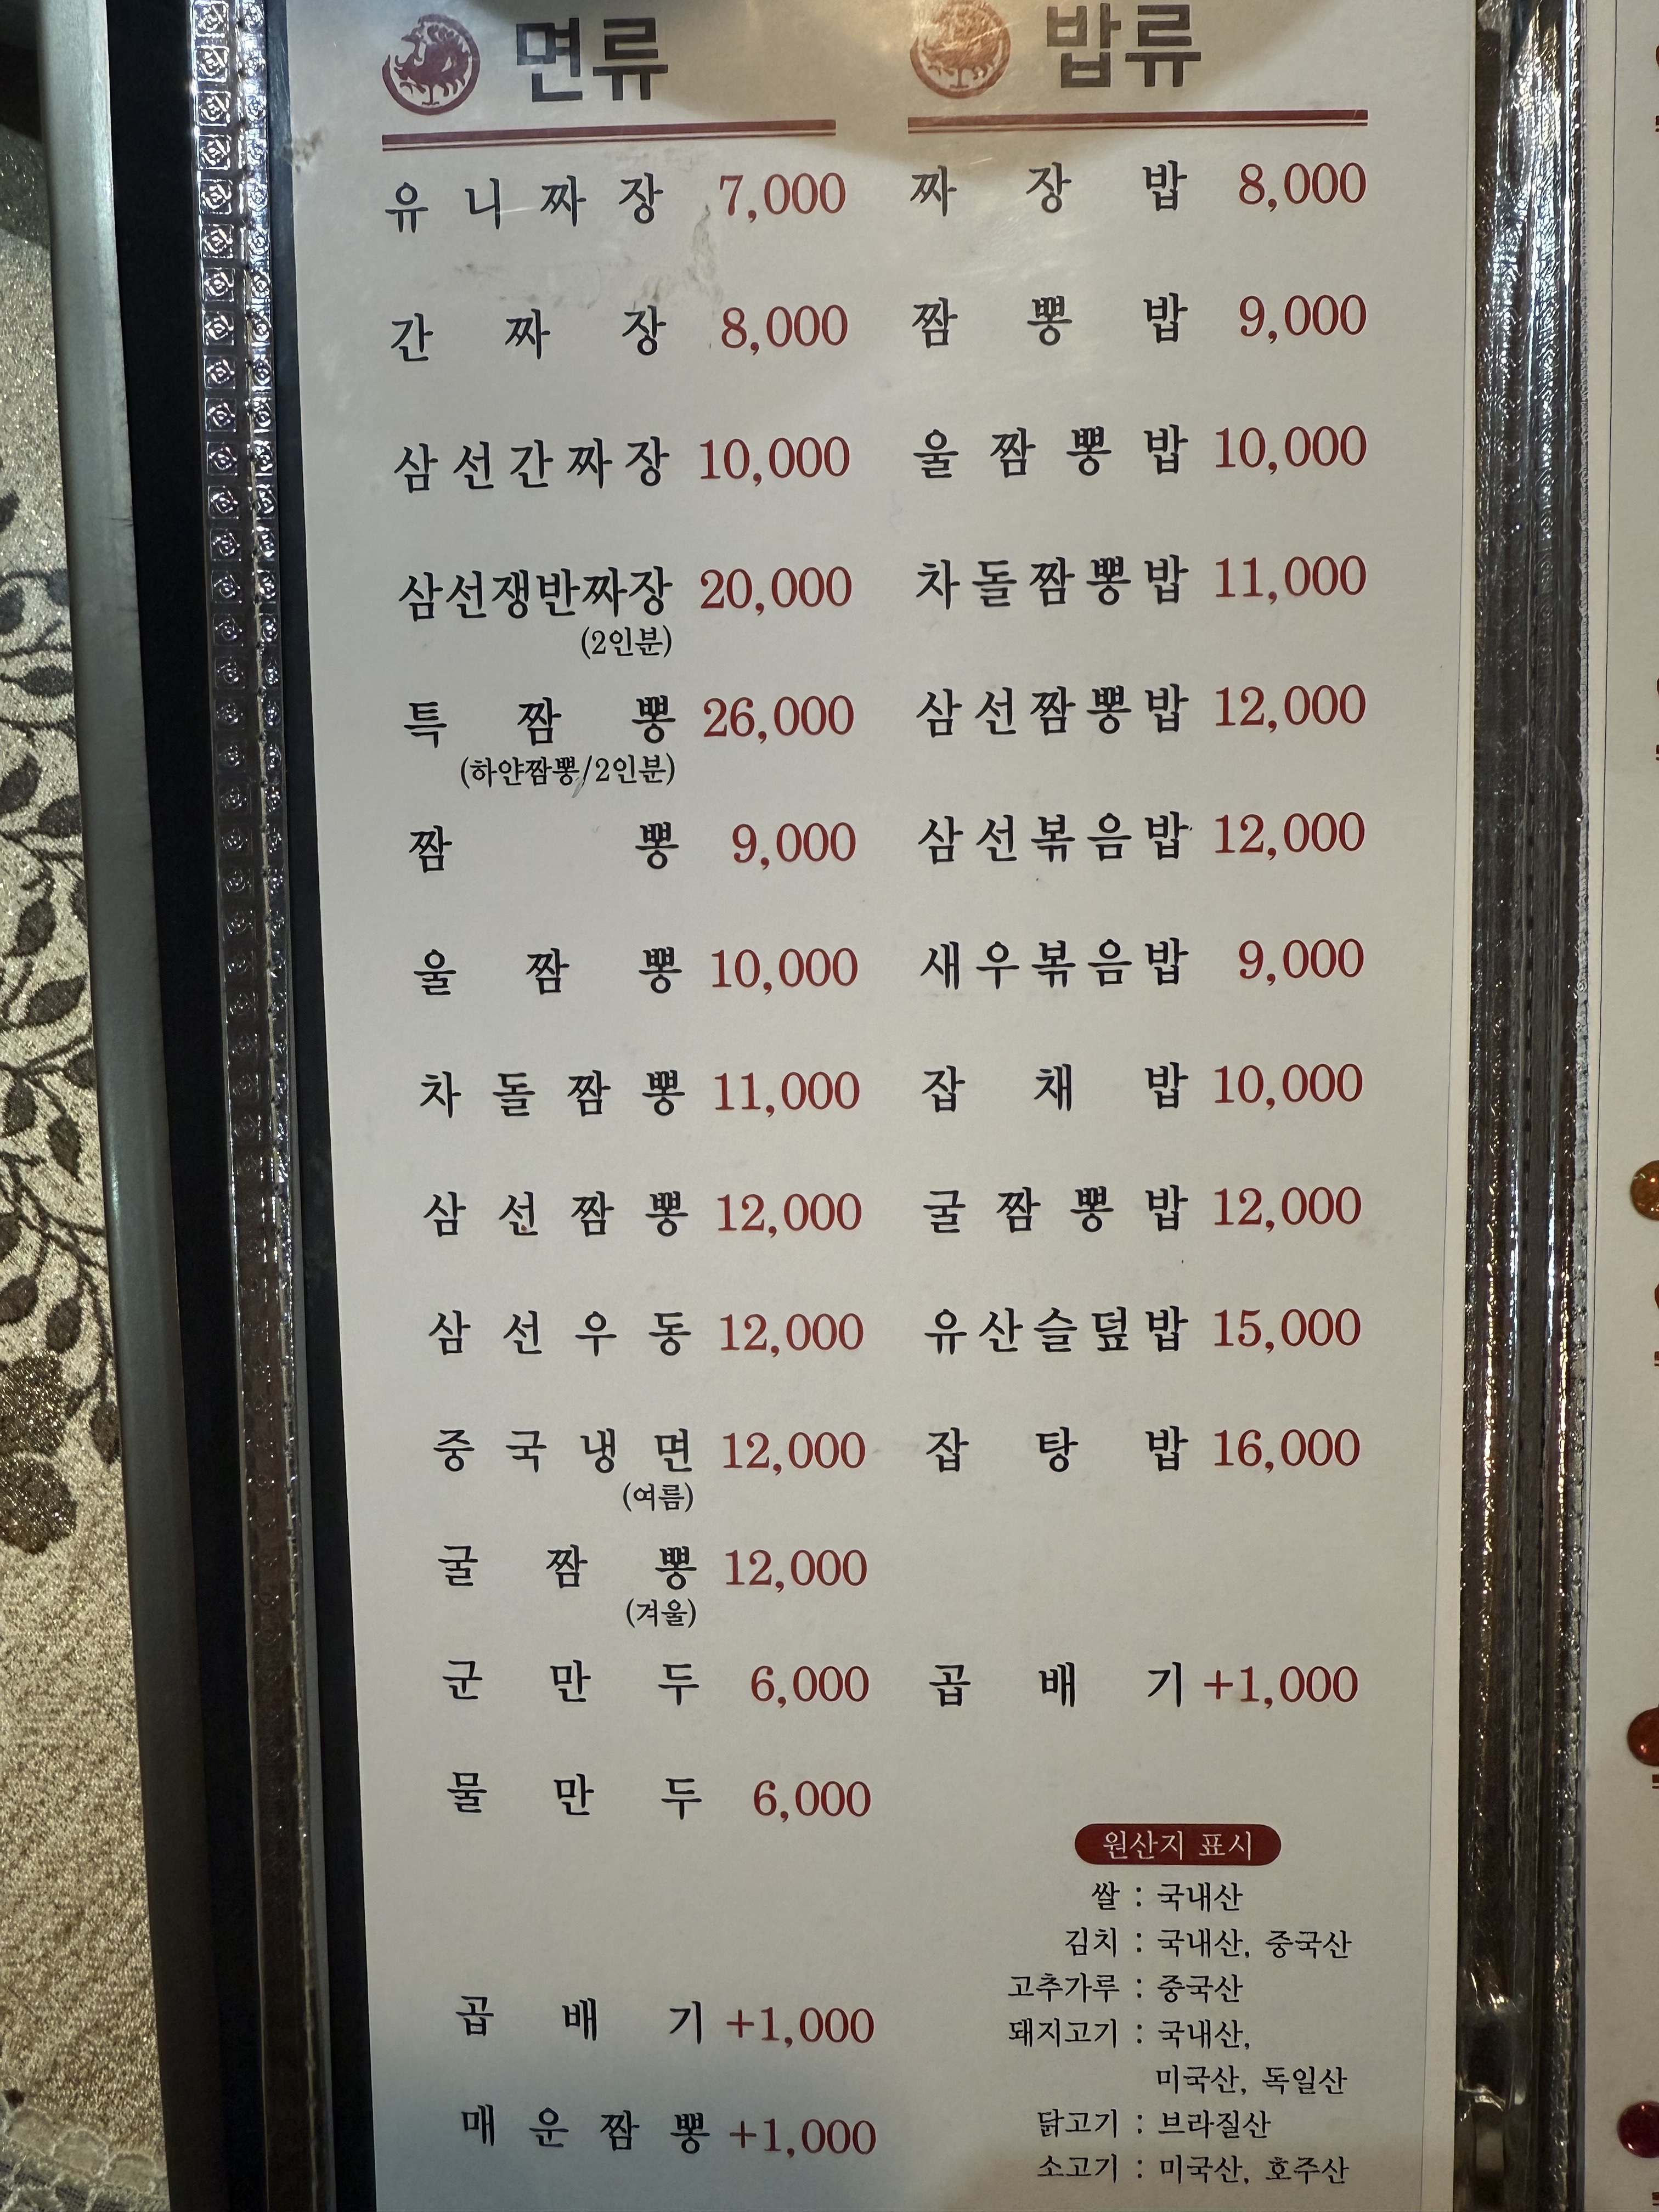 면류
유니짜장 7,000
간짜장 8,000
삼선간짜장 10,000
삼선쟁반짜장 20,000
(2인분)
특짬뽕 26,000
(하얀짬뽕/2인분)
짬뽕 9,000
울짬뽕 10,000
차돌짬뽕 11,000
삼선짬뽕 12,000
삼선우동 12,000
중국냉면 12,000
(여름)
굴짬뽕 12,000
(겨울)
군만두 6,000
물만두 6,000
곱배기 +1,000
매운짬뽕 +1,000
밥류
짜장밥 8,000
짬뽕밥 9,000
울짬뽕밥 10,000
차돌짬뽕밥 11,000
삼선짬뽕밥 12,000
삼선볶음밥 12,000
새우볶음밥 9,000
잡채밥 10,000
굴짬뽕밥 12,000
유산슬덮밥 15,000
잡탕밥 16,000
곱배기 +1,000
원산지 표시
쌀 : 국내산
김치 : 국내산, 중국산
고추가루 : 중국산
돼지고기 : 국내산,
미국산, 독일산
닭고기 : 브라질산
소고기 : 미국산, 호주산